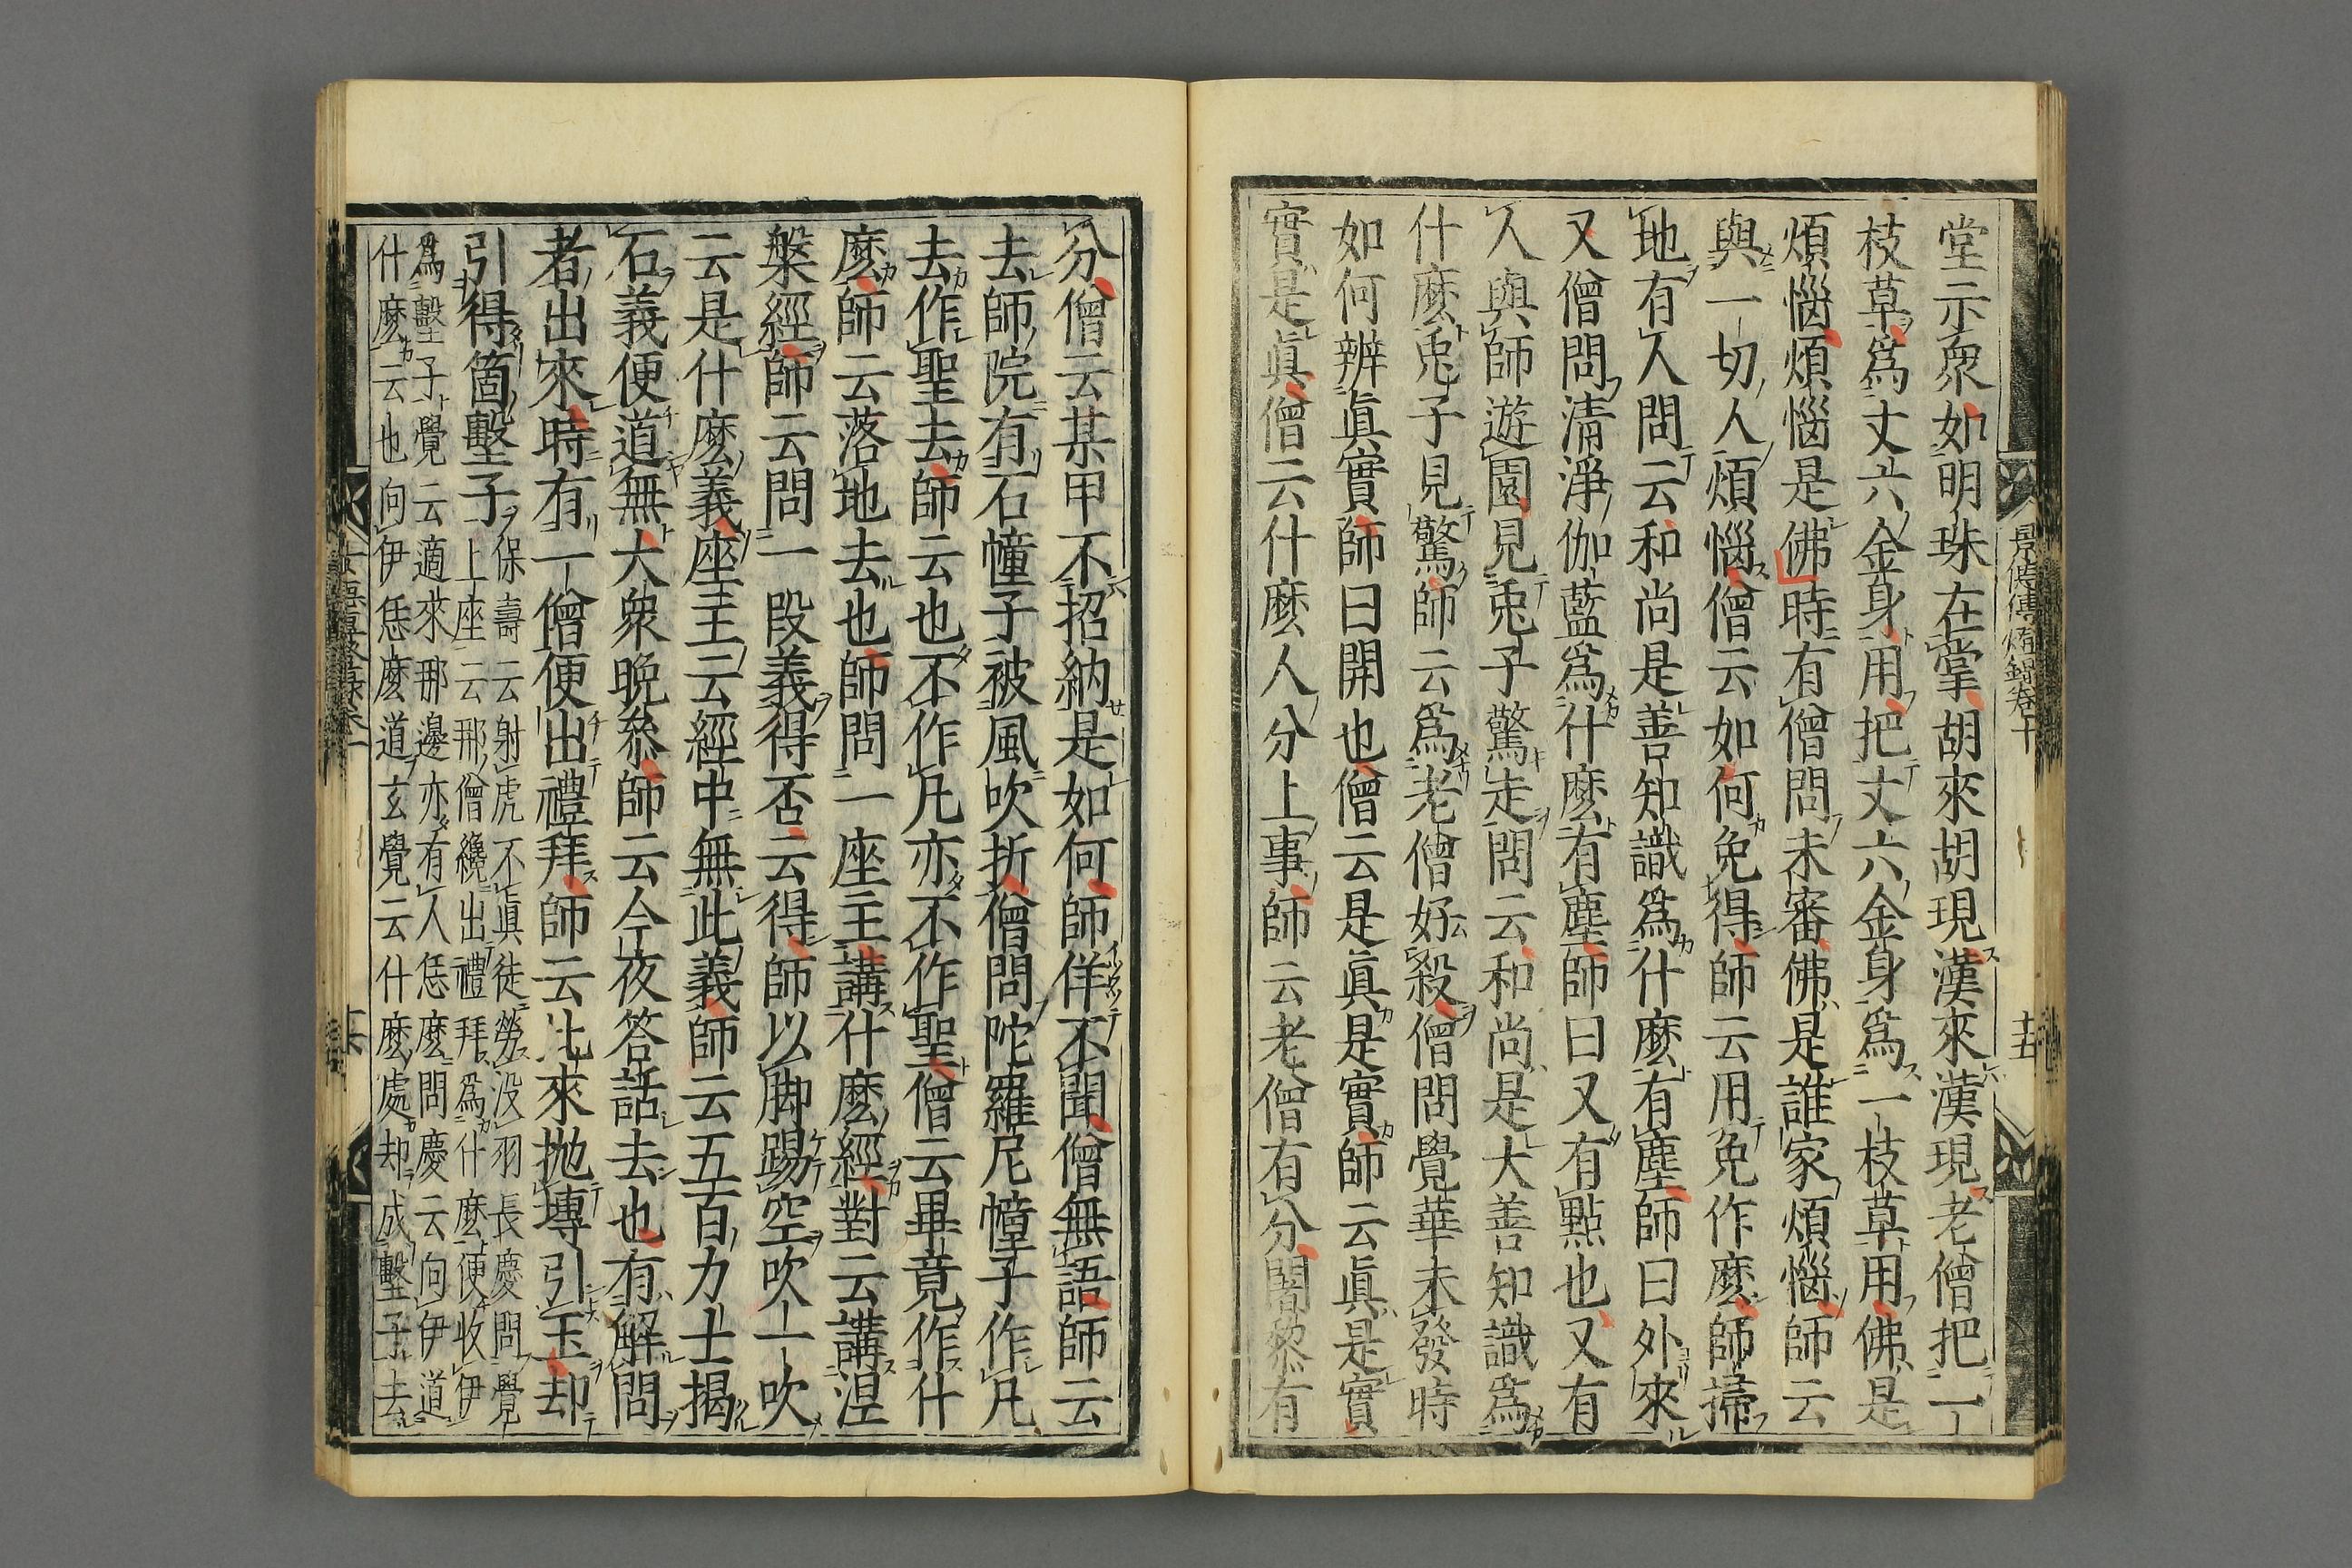 景德傳燈錄卷十
十五
堂示衆如明珠在掌胡來胡現漢來漢現老僧把一
枝草爲丈六金身用把丈六金身爲一枝草用佛是
煩惱煩惱是佛時有僧問未審佛是誰家煩惱師云
與一切人煩惱僧云如何免得師云用免作麽師掃
地有人問云和尚是善知識爲什麽有塵師曰外來
又僧問清淨伽藍爲什麽有塵師曰又有點也又有
人與師遊園見兎子驚走問云和尚是大善知識爲
什麽兎子見驚師云爲老僧好殺僧問覺華未發時
如何辨眞實師曰開也僧云是眞是實師云眞是實
實是眞僧云什麽人分上事師云老僧有分闍黎有
分僧云某甲不招納是如何師佯不聞僧無語師云
去師院有石幢子被風吹折僧問陀羅尼幢子作凡
去作聖去師云也不作凡亦不作聖僧云畢竟作什
麽師云落地去也師問一座主講什麽經對云講涅
槃經師云問一段義得否云得師以脚踢空吹一吹
云是什麽義座主云經中無此義師云五百力士揭
石義便道無大衆晩叅師云今夜答話去也有解問
者出來時有一僧便出禮拜師云比來抛塼引玉却
引得箇墼子
保壽云射虎不眞徒勞没羽長慶問覺
上座云那僧纔出禮拜爲什麽便收伊
爲墼子覺云適來那邊亦有人恁麽問慶云向伊道
什麽云也向伊恁麽道玄覺云什麽處却成墼子去